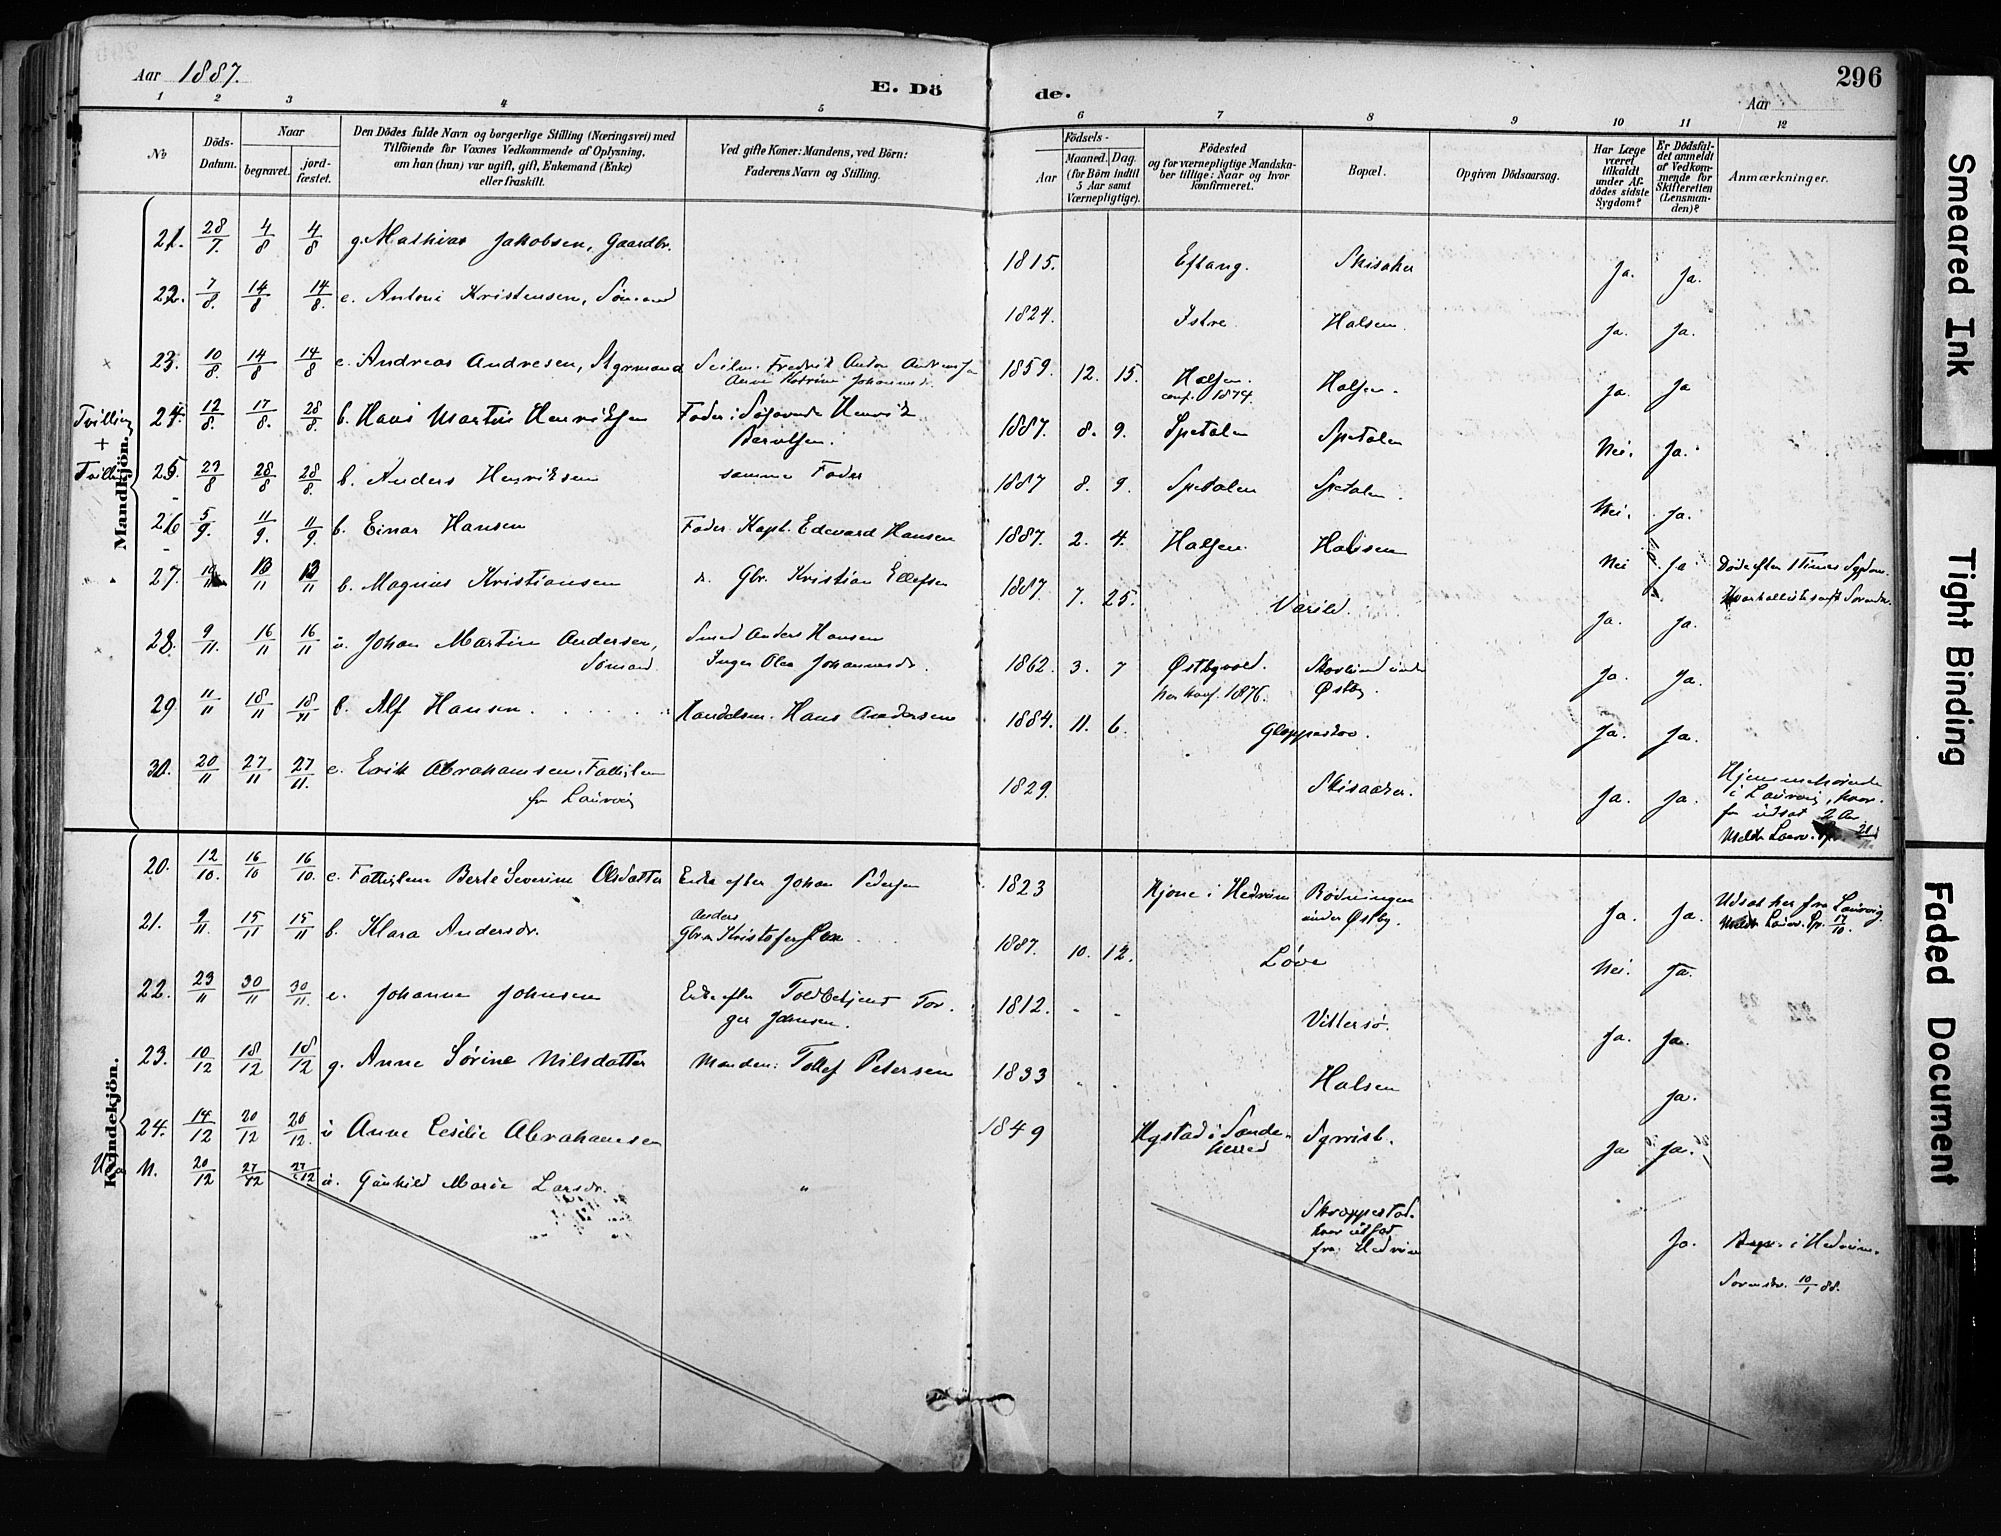 Aar 1887.
E. Dö
de.
Aar
296
1 2 3 4 5 6 7 8 9 10 11 12
No
Döds-
Datum.
Naar
begravet.
jord-
fæstet.
Den Dödes fulde Navn og borgerlige Stilling (Næringsvei) med
Tilföiende for Voxnes Vedkommende af Oplysning,
om han (hun) var ugift, gift, Enkemand (Enke)
eller fraskilt.
Ved gifte Koner: Mandens, ved Börn:
Faderens Navn og Stilling.
Födsels-
Aar
Maaned.
Dag.
(for Börn indtil
5 Aar samt
Værnepligtige).
Födested
og for værnepligtige Mandska-
ber tillige: Naar og hvor
konfirmeret.
Bopæl.
Opgiven Dödsaarsag.
Har Læge
været
tilkaldt
under Af-
dödes sidste
Sygdom?
Er Dödsfal-
det anmeldt
af Vedkom-
mende for
Skifteretten
(Lensman-
den)?
Anmærkninger.
Mandkjön.
21. 28/7 4/8 4/8 g. Mathias Jakobsen, Gaardbr. 1815. Eftang. Skisaker Ja. Ja.
22. 7/8. 14/8 14/8. e. Antoni Kristensen, Sömand 1824. Istre. Halsen. Ja. Ja.
23. 10/8. 14/8 14/8 e. Andreas Andresen, Styrmand Seilm. Fredrik Anton Andresen 1859. 12. 15. Halsen. Halsen. Ja. Ja
conf. 1874.
Tvilling 24. 12/8. 17/8. 28/8. b. Hans Martin Henriksen Fader: Søfarende Henrik 1887. 8. 9. Spetalen Spetalen Nei. Ja.
+
Tvilling 25. 23/8 28/8 28/8. b. Anders Henriksen samme Fader 1887 8. 9. Spetalen Spetalen. Nei. Ja.
26 5/9. 11/9. 11/9. b. Einar Hansen Fader. Kapt. Edevard Hansen 1887. 2. 4. Halsen. Halsen Nei Ja
27. 10/11 13/11 13/11 b. Magnus Kristiansen Gbr. Kristian Ellefsen 1887 7. 25. Varild. Ja. Ja.
28. 9/11. 16/11 16/11 u. Johan Martin Andersen, Smed Anders Hansen 1862. 3. 7 Østbyvold. Ja. Ja.
Sömand. Inger Olea Johannesdr. conf. 1876. Østby.
29 11/11 18/11 18/11 b. Alf Hansen. Handelsm. Hans Andersen 1884. 11. 6. Gloppestov. Ja. Ja.
30. 20/11 27/11 27/11. e. Erik Abrahamsen, Fattiglem 1829. Skisaaker. Ja. Ja. Hjemmehørende
fra Laurvig i Laurvig, hvor-
fra udsat 2 Aar
Kvindekjön.
20. 12/10. 16/10 16/10. e. Fattiglem Berte Severine Olsdatter Enke efter Johan Pedersen 1823 Kjone i Hedrum Rødningen Ja. Ja. Udsat her fra Laurvig
under Østby. 17/10.
21. 9/11. 15/11 15/11 b. Klara Andersdr. Anders 1887. 10. 12. Løve Nei. Ja.
22. 23/11 30/11 30/11. e. Johanne Johnsen Enke efter Toldbetjent Tor- 1812. - - Vittersø. Ja. Ja.
ger Johnsen.
23. 10/12 18/12 18/12 g. Anne Sørine Nilsdatter Manden: Tollef Petersen 1833 Halsen Ja.
24. 14/12 20/12 20/12. u Anne Cesilie Abrahamsen 1849 Nystad i Sande- Ja Ja.
herred
N. 20/12 27/12 27/12 u. Gunhild Marie Larsdr. " Skroppestad. Ja. i Hedrum.
hvor udsat
fra Hedrum
10/1 88.
Smeared Ink
Tight Binding
Faded Document